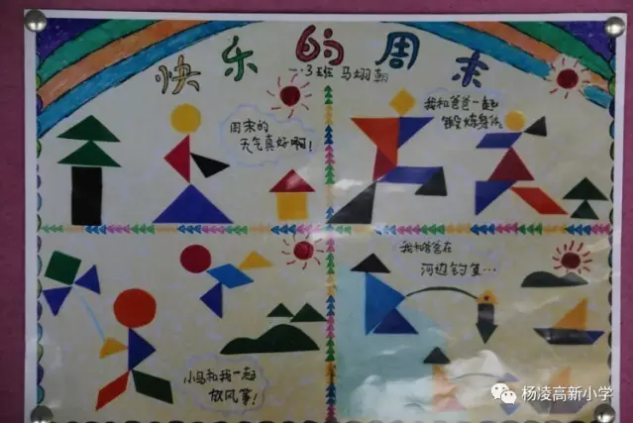 快乐的周末
一.3班 马翊翾
周末的
天气真好啊!
我和爸爸一起
锻炼身体
小鸟和我一起
放风筝!
我和爸爸在
河边钓鱼…
杨凌高新小学